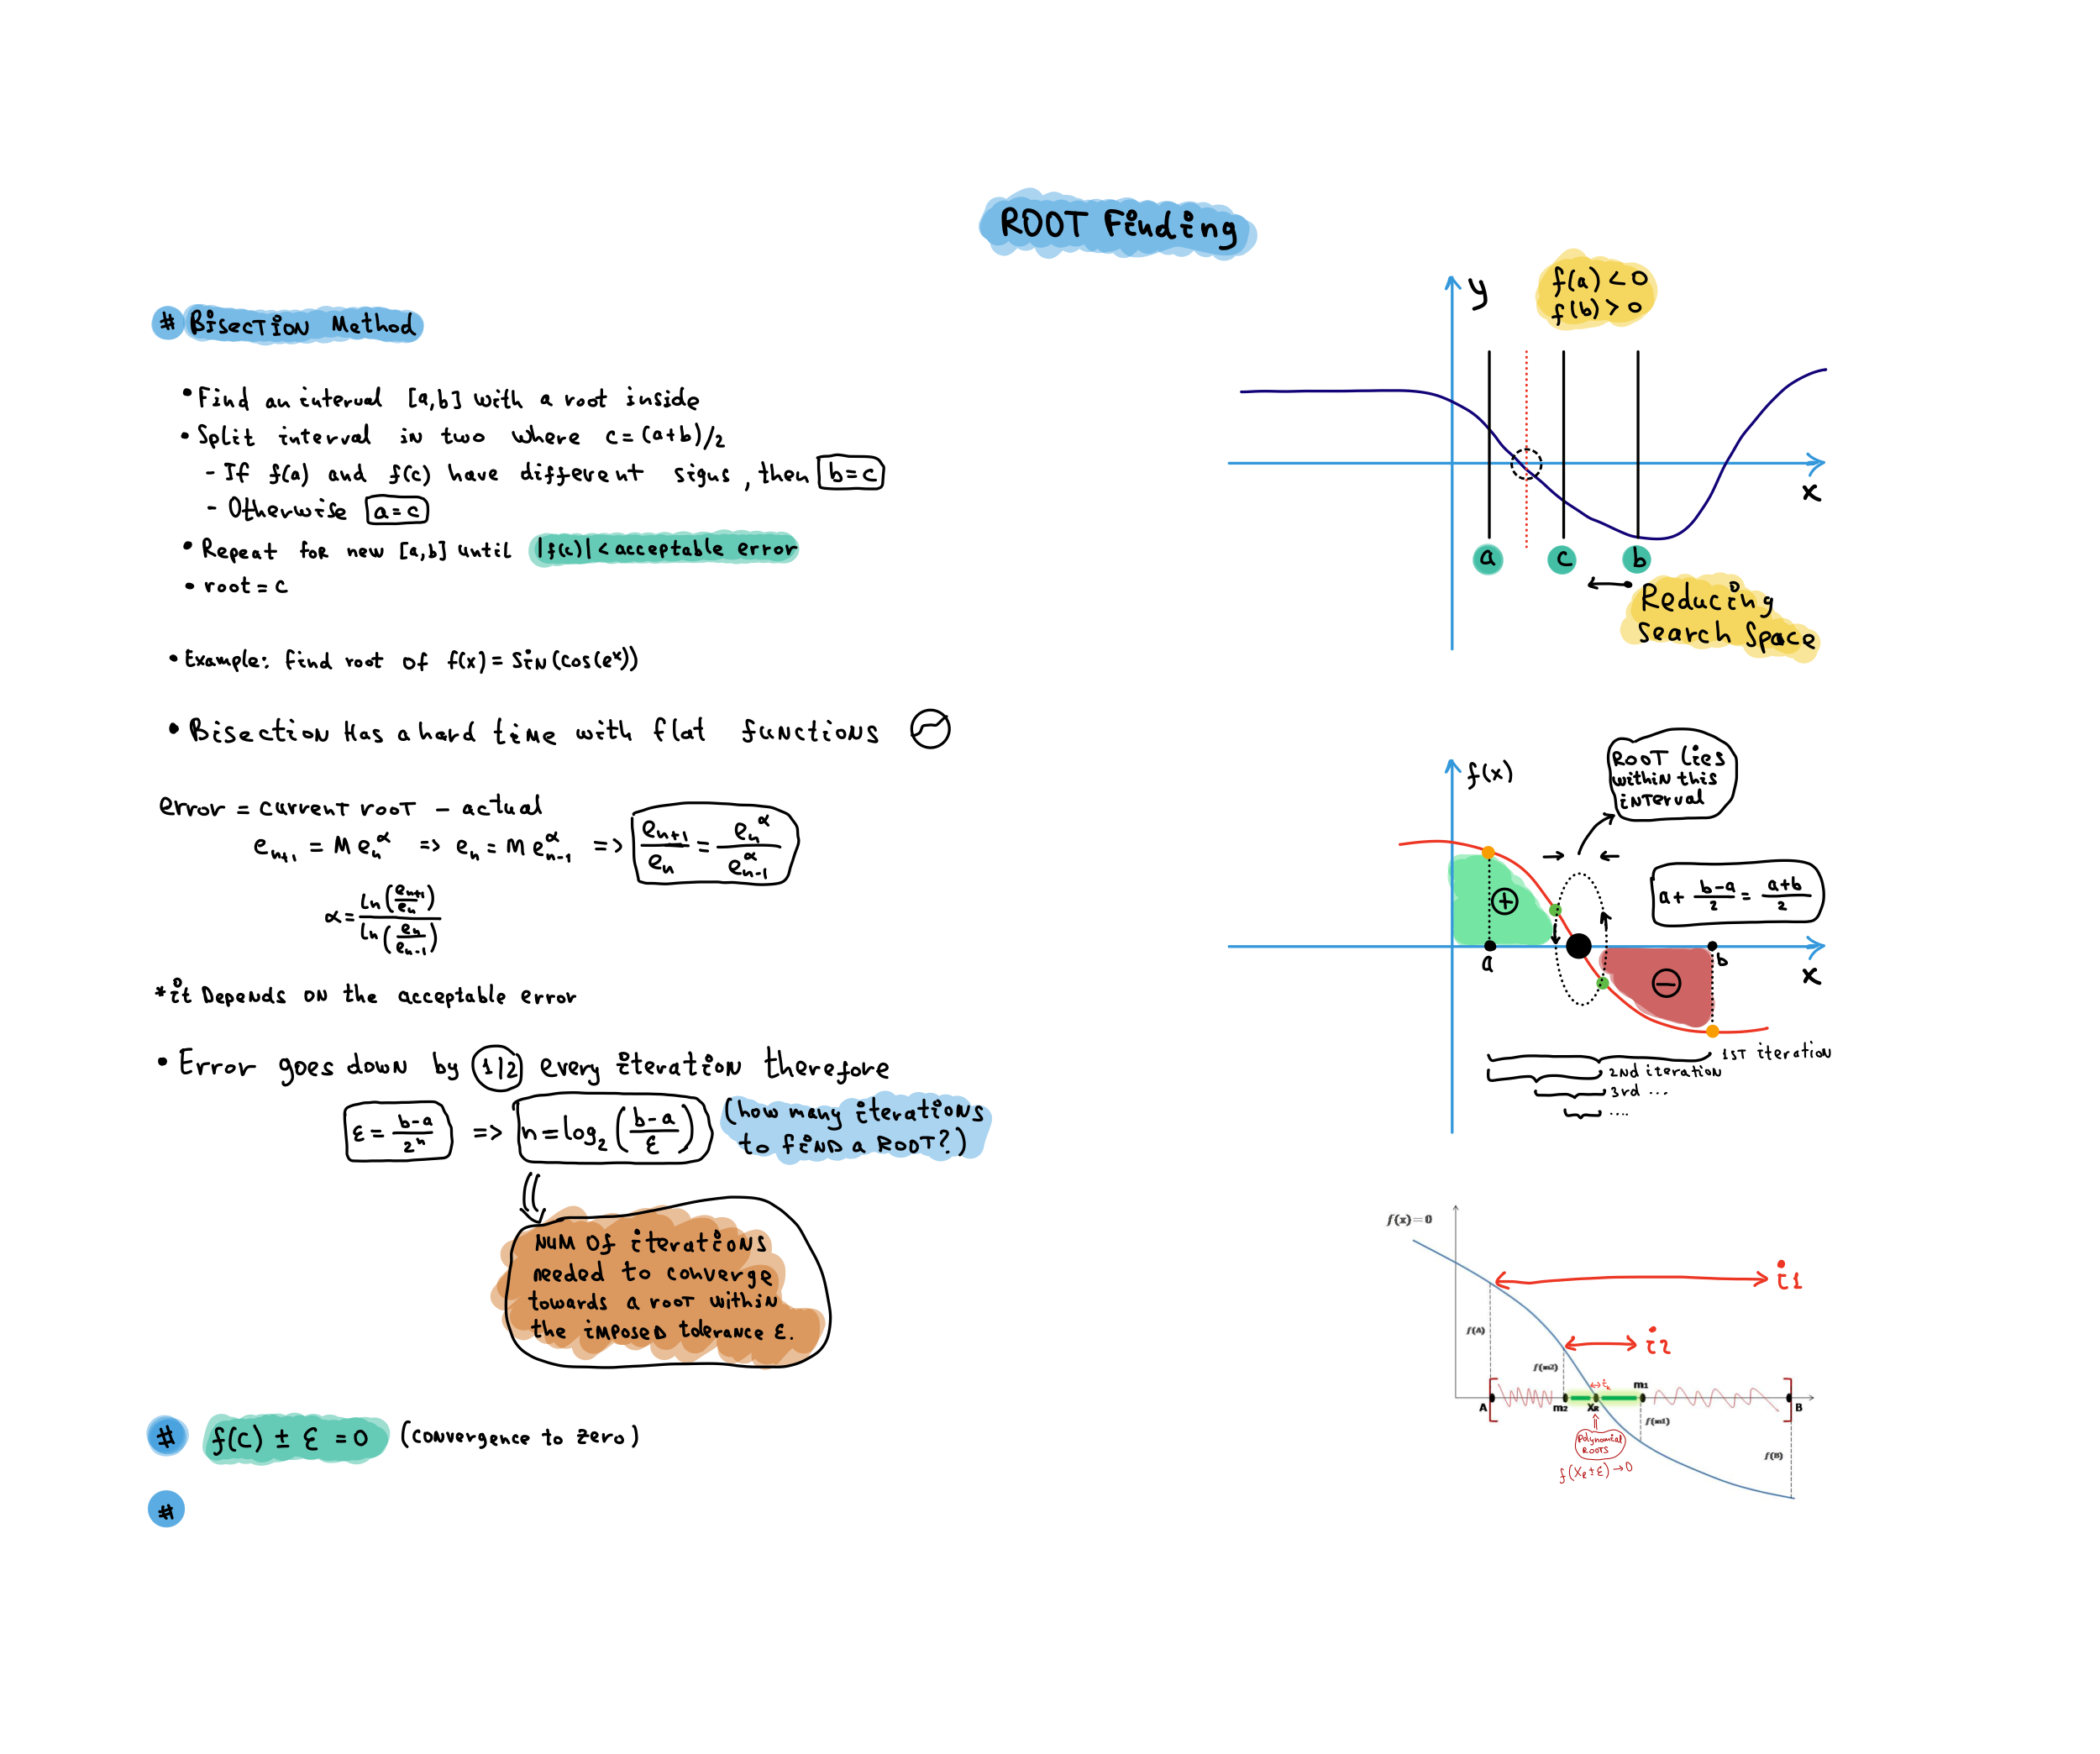 ROOT Finding
# Bisection Method
• Find an interval [a,b] with a root inside
• Split interval in two where c=(a+b)/2
- If f(a) and f(c) have different signs, then b=c
- Otherwise a=c
• Repeat for new [a,b] until |f(c)| < acceptable error
• root = c
• Example: find root of f(x) = sin(cos(eˣ))
• Bisection Has a hard time with flat functions
error = current root - actual
eₙ₊₁ = M eₙ^α => eₙ = M eₙ₋₁^α => eₙ₊₁/eₙ = eₙ^α/eₙ₋₁^α
α = ln(eₙ₊₁/eₙ)/ln(eₙ/eₙ₋₁)
*it Depends on the acceptable error
• Error goes down by 1/2 every iteration therefore
ε = (b-a)/2ⁿ => n = log₂((b-a)/ε) (how many iterations
to find a root?)
Num of iterations
needed to converge
towards a root within
the imposed tolerance ε.
# f(c) ± ε = 0 (convergence to zero)
#
y
f(a) < 0
f(b) > 0
x
a
c
b
Reducing
Search Space
f(x)
Root lies
within this
interval
a + (b-a)/2 = (a+b)/2
+
a
b
x
−
1st iteration
2nd iteration
3rd ...
....
f(x)=0
i1
f(A)
i2
f(m2)
m1
A
m2
XR
B
f(m1)
Polynomial
Roots
f(B)
f(XR ± ε) → 0